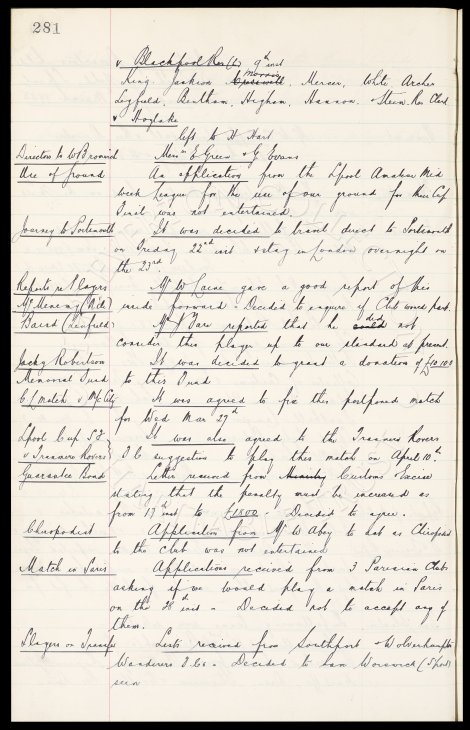 281
v Blackpool Res (h) 9th inst
King, Jackson, Cresswell Morris, Mercer, White, Archer
Leyfield, Bentham, Higham, Hannon, Stein. Res Clark
v Hoylake
left to H. Hart
Directors to W Bromwich Messrs E Green & G Evans
Use of ground An application from the Lpool Amateur Mid
week League for the use of our ground for their Cup
Final was not entertained.
Journey to Portsmouth It was decided to travel direct to Portsmouth
on Friday 22nd inst & stay in London overnight on
the 23rd.
Reports re Players Mr W C gave a good report of this
McMenemy inside forward Decided to enquire if Club would part.
Baird (Linfield) Mr J Fare reported that he could did not
consider this player up to our standard at present.
Jacky Robertson It was decided to grant a donation of £10.10.0
Memorial Fund to this Fund
C/ match v M/c City It was agreed to fix this postponed match
for Wed Mar 27th
Lpool Cup S.F. It was also agreed to the Tranmere Rovers
v Tranmere Rovers F.C suggestion to play this match on April 10th.
Guarantee Bond Letter received from Ministry Customs & Excise
stating that the penalty must be increased as
from 19th inst to £1800. Decided to agree.
Chiropodist Application from Mr W Abey to act as Chiropodist
to the club was not entertained
Match in Paris Applications received from 3 Parisian Clubs
asking if we would play a match in Paris
on the 28th inst - Decided not to accept any of
them.
Players on Transfer Lists received from Southport & Wolverhampton
Wanderers F.Cs - Decided to have Worswick (S'port)
seen